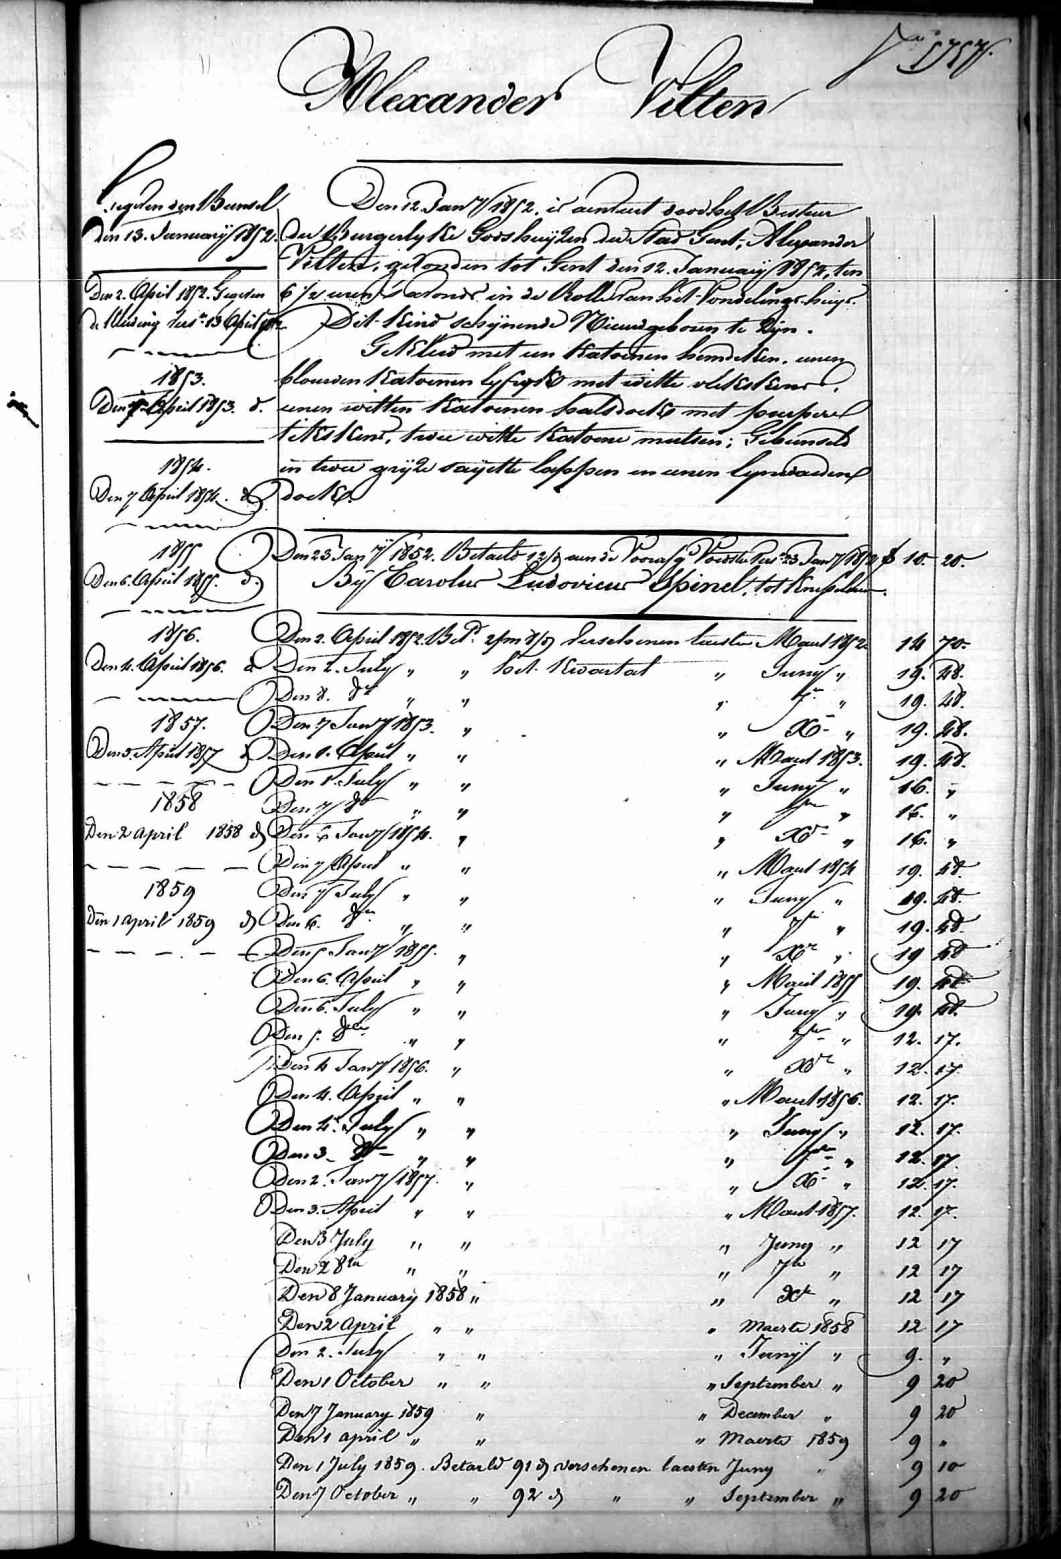 1757.
Alexander Vilten
Gegeven den Bunsel
den 13. January 1852.
Den 2. April 1852. Gegeven
de kleeding vers. 13 April
1853.
Den April 1853. d.
1854.
Den 7 April 1854. d.
1855
Den 6. April 1855. d
1856.
Den 4. April 1856. d
1857.
Den 3. April 1857 d
1858
Den 2 april 1858 d
1859
Den 1 april 1859 d
Den 12 Jan.y 1852. is aenveert door het Bestuer
der Burgerlyke Godshuyzen der Stad Gent, Alexander
Vilten, gevonden tot Gent den 12. January 1852, ten
6 1/2 uren s'avonds in de Rolle van het Vondelings-huys.
Dit Kind schynende Nieuwgeboren te Zyn.
Gekleed met een katoenen hemdeken, eenen
blouwen katoenen lyfrok met witte vlekskens,
eenen witten katoenen halsdoek met purpere
tekskens, twee witte katoene mutsen; Gebunseld
in twee gryze sayette lappen en eenen lynwaeden
doek
Den 23 Jan.y 1852. Betaeld 12/d aen de Voedster 23 Jan.y 1852 10. 20.
By Carolus Ludovicus Spinel, tot Knesselaere.
Den 2. April 1852 Bet. verschenen laesten Maert 1852 14 70.
Den 2. July " " het Kwartael " Juny " 19. 48.
Den 8. " " " 7re " 19. 48.
Den 7 Jan.y 1853. " " Xre " 19. 48.
Den 1. April " " " Maert 1853. 19. 48.
Den 1. July " " " Juny " 16. "
Den 7 " " " 7re " 16. "
Den 6 Jan.y 1854. " " Xre " 16. "
Den 7 April " " " Maert 1854 19. 48.
Den 7 July " " " Juny " 19. 48.
Den 6. " " " 7re " 19. 48
Den 5 Jan.y 1855. " " Xre " 19 48
Den 6. April " " " Maert 1855 19. 48
Den 6. July " " " Juny " 19. 48.
Den 5. " " " 7re " 12. 17.
Den 4 Jan.y 1856. " " Xre " 12. 17.
Den 4. April " " " Maert 1856. 12. 17.
Den 4. July " " " Juny " 12. 17.
Den 3. " " " 7re " 12. 17.
Den 2. Jan.y 1857. " " Xre " 12. 17.
Den 3. April " " " Maert 1857. 12. 17.
Den 3 July " " " Juny " 12 17
Den 2 8re " " " 7re " 12 17
Den 8 January 1858 " " Xre " 12 17
Den 2 april " " " Maerte 1858 12 17
Den 2. July " " " Juny " 9. "
Den 1 October " " " September " 9 20
Den 7 January 1859 " " December " 9 20
Den 1 april " " " Maerte 1859 9 "
Den 1 July 1859. Betaeld 91 d verschenen laesten Juny " 9 10
Den 7 October " " 92 d " " September " 9 20